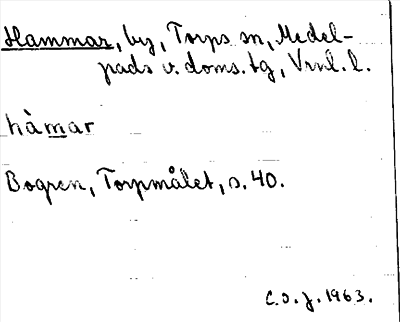 Hammar, by, Torps sn, Medel-
pads v. doms. tg, Vrnl. l.
hàmar
Bogren, Torpmålet, s. 40.
C. O. J. 1963.